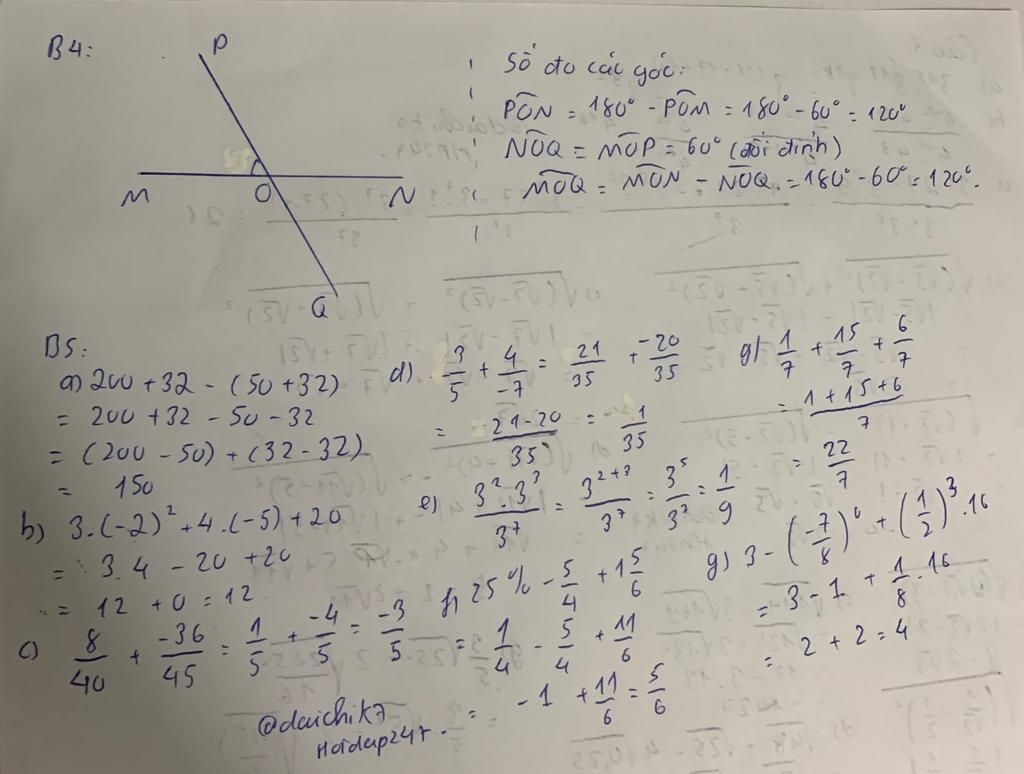 B4:
P
M
O
N
Q
Số đo các góc:
PÔN = 180° - PÔM = 180° - 60° = 120°
NÔQ = MÔP = 60° (đối đỉnh)
MÔQ = MÔN - NÔQ = 180° - 60° = 120°.
B5:
a) 200 + 32 - (50 + 32)
= 200 + 32 - 50 - 32
= (200 - 50) + (32 - 32)
= 150
b) 3.(-2)² + 4.(-5) + 20
= 3.4 - 20 + 20
= 12 + 0 = 12
c) 8/40 + -36/45 = 1/5 + -4/5 = -3/5
d) 3/5 + 4/-7 = 21/35 + -20/35
= 21-20/35 = 1/35
e) 3².3³/3⁷ = 3²⁺³/3⁷ = 3⁵/3⁷ = 1/9
f) 25% - 5/4 + 1 5/6
= 1/4 - 5/4 + 11/6
= -1 + 11/6 = 5/6
g) 1/7 + 15/7 + 6/7
= 1+15+6/7
= 22/7
g) 3 - (-7/8)⁰ + (1/2)³.16
= 3 - 1 + 1/8.16
= 2 + 2 = 4
@daichik7
Hoidap247.